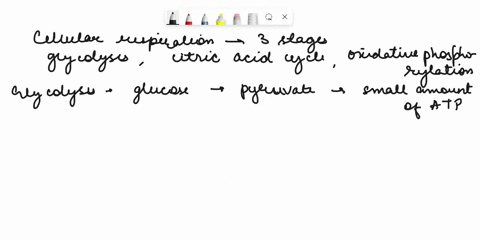 Cellular respiration → 3 stages
glycolysis, citric acid cycle, oxidative phospho-
rylation
Glycolysis → glucose → pyruvate → small amount
of ATP